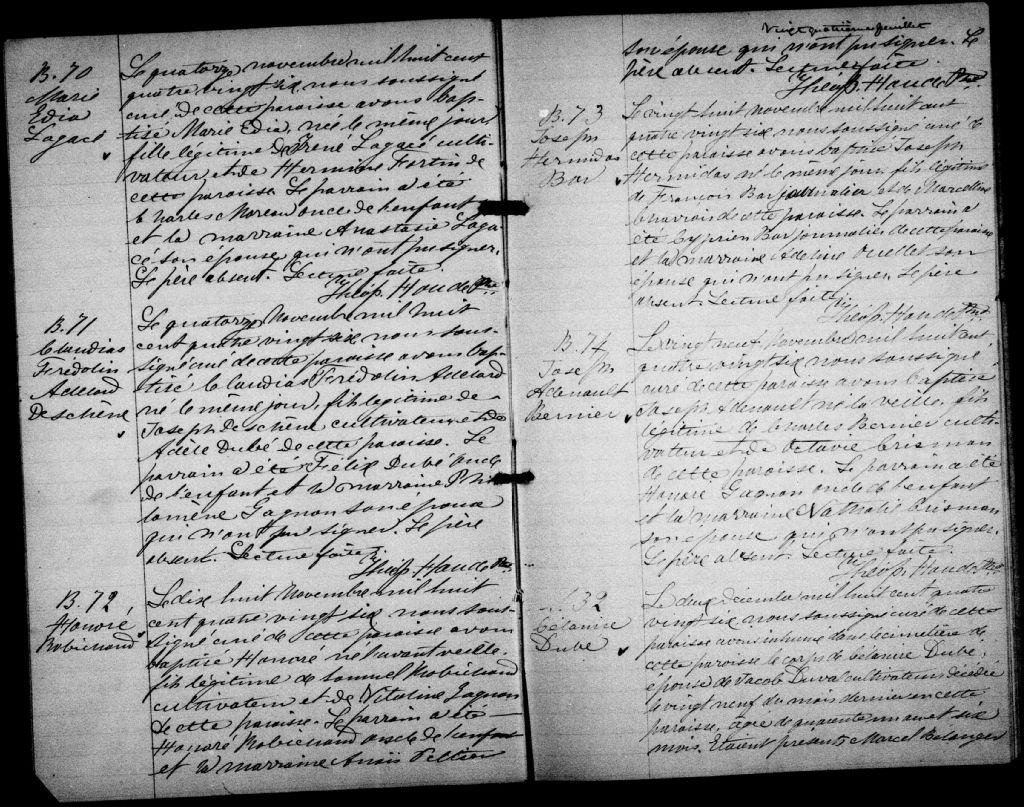 B. 70
Marie
Edia
Lagacé
Le quatorze novembre mil huit cent
quatre vingt six nous soussigné
curé de cette paroisse avons bap-
tisé Marie Edia, née le même jour
fille légitime de Irené Lagacé culti-
vateur et de Hermine Fortin de
cette paroisse. Le parrain a été
Charles Moreau oncle de l'enfant
et la marraine Anastasie Laga
cé son épouse qui n'ont pu signer.
Le père absent. Lecture faite.
Théop. Houde Ptre
B. 71
Claudias
Fredolin
Adelard
Deschene
Le quatorze Novembre mil huit
cent quatre vingt six nous sous-
signé curé de cette paroisse avons bap-
tisé Claudias Fredolin Adelard
né le même jour, fils légitime de
Joseph Deschene cultivateur et de
Adèle Dubé de cette paroisse. Le
parrain a été Félix Dubé oncle
de l'enfant et la marraine Phi
lomène Gagnon son épouse
qui n'ont pu signer. Le père
absent. Lecture faite.
Théop. Houde Ptre
B. 72
Honoré
Robichaud
Le dix huit Novembre mil huit
cent quatre vingt six nous sous-
signé curé de cette paroisse avons
baptisé Honoré né l'avant veille,
fils légitime de Samuel Robichaud
cultivateur et de Vitaline Gagnon
de cette paroisse. Le parrain a été
Honoré Robichaud oncle de l'enfant
et la marraine Anaïs Peltier
Vingt quatrième feuillet
son épouse qui n'ont pu signer. Le
père absent. Lecture faite
Théop. Houde Ptre
B. 73
Joseph
Hermidas
Bar
Le vingt huit Novembre mil huit cent
quatre vingt six nous soussigné curé de
cette paroisse avons baptisé Joseph
Hermidas né le même jour fils légitime
de François Bar journalier et de Marcelline
de cette paroisse. Le parrain a
été Cyprien Bar journalier de cette paroisse
et la marraine Adeline Ouellet son
épouse qui n'ont pu signer. Le père
absent. Lecture faite.
Théop. Houde Ptre
B. 74
Joseph
Adenault
Bernier
Le vingt neuf Novembre mil huit cent
quatre vingt six nous soussigné
curé de cette paroisse avons baptisé
Joseph Adenault né la veille, fils
légitime de Charles Bernier culti-
vateur et de Octavie Crisman
de cette paroisse. Le parrain a été
Honoré Gagnon oncle de l'enfant
et la marraine Nathalie Crisman
son épouse qui n'ont pu signer.
Le père absent. Lecture faite.
Théop. Houde Ptre
32
Célanire
Dubé
Le deux décembre mil huit cent quatre
vingt six nous soussigné curé de cette
paroisse avons inhumé dans le cimetière de
cette paroisse le corps de Célanire Dubé,
épouse de Jacob Duval cultivateur, décédée
le vingt neuf du mois dernier en cette
paroisse, âgée de quarante un an et six
mois. Etaient présents Marcel Belanger